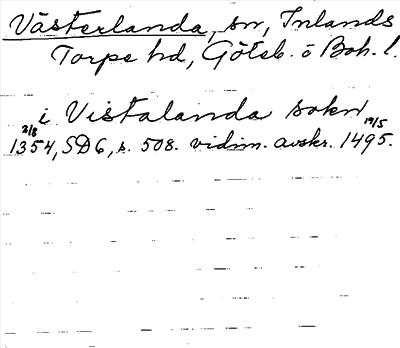 Västerlanda, sn, Inlands
Torpe hd, Göteb. o Boh. l.
i Vistalanda sokn
2/8 1354, SD6, s. 508. vidim. avskr. 19/5 1495.